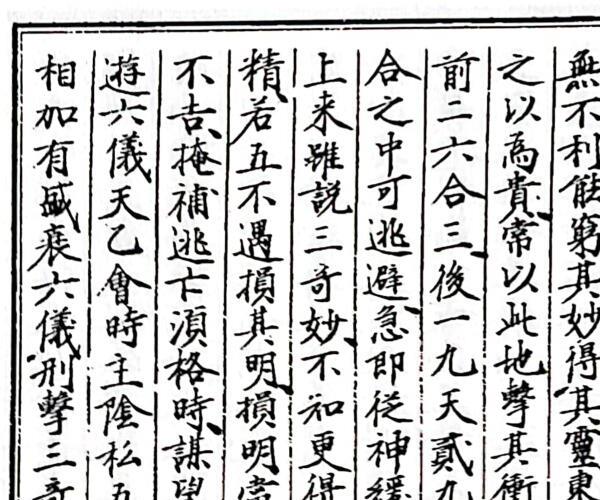 無不利能窮其妙得其靈東
之以為貴常以此地擊其衝
前二六合三後一九天貳九
合之中可逃避急即従神緩
上来雖説三奇妙不知更得
精若五不遇損其明損明當
不吉掩補逃亡須格時謀望
遊六儀天乙會時主陰私五
相加有盛衰六儀刑擊三奇